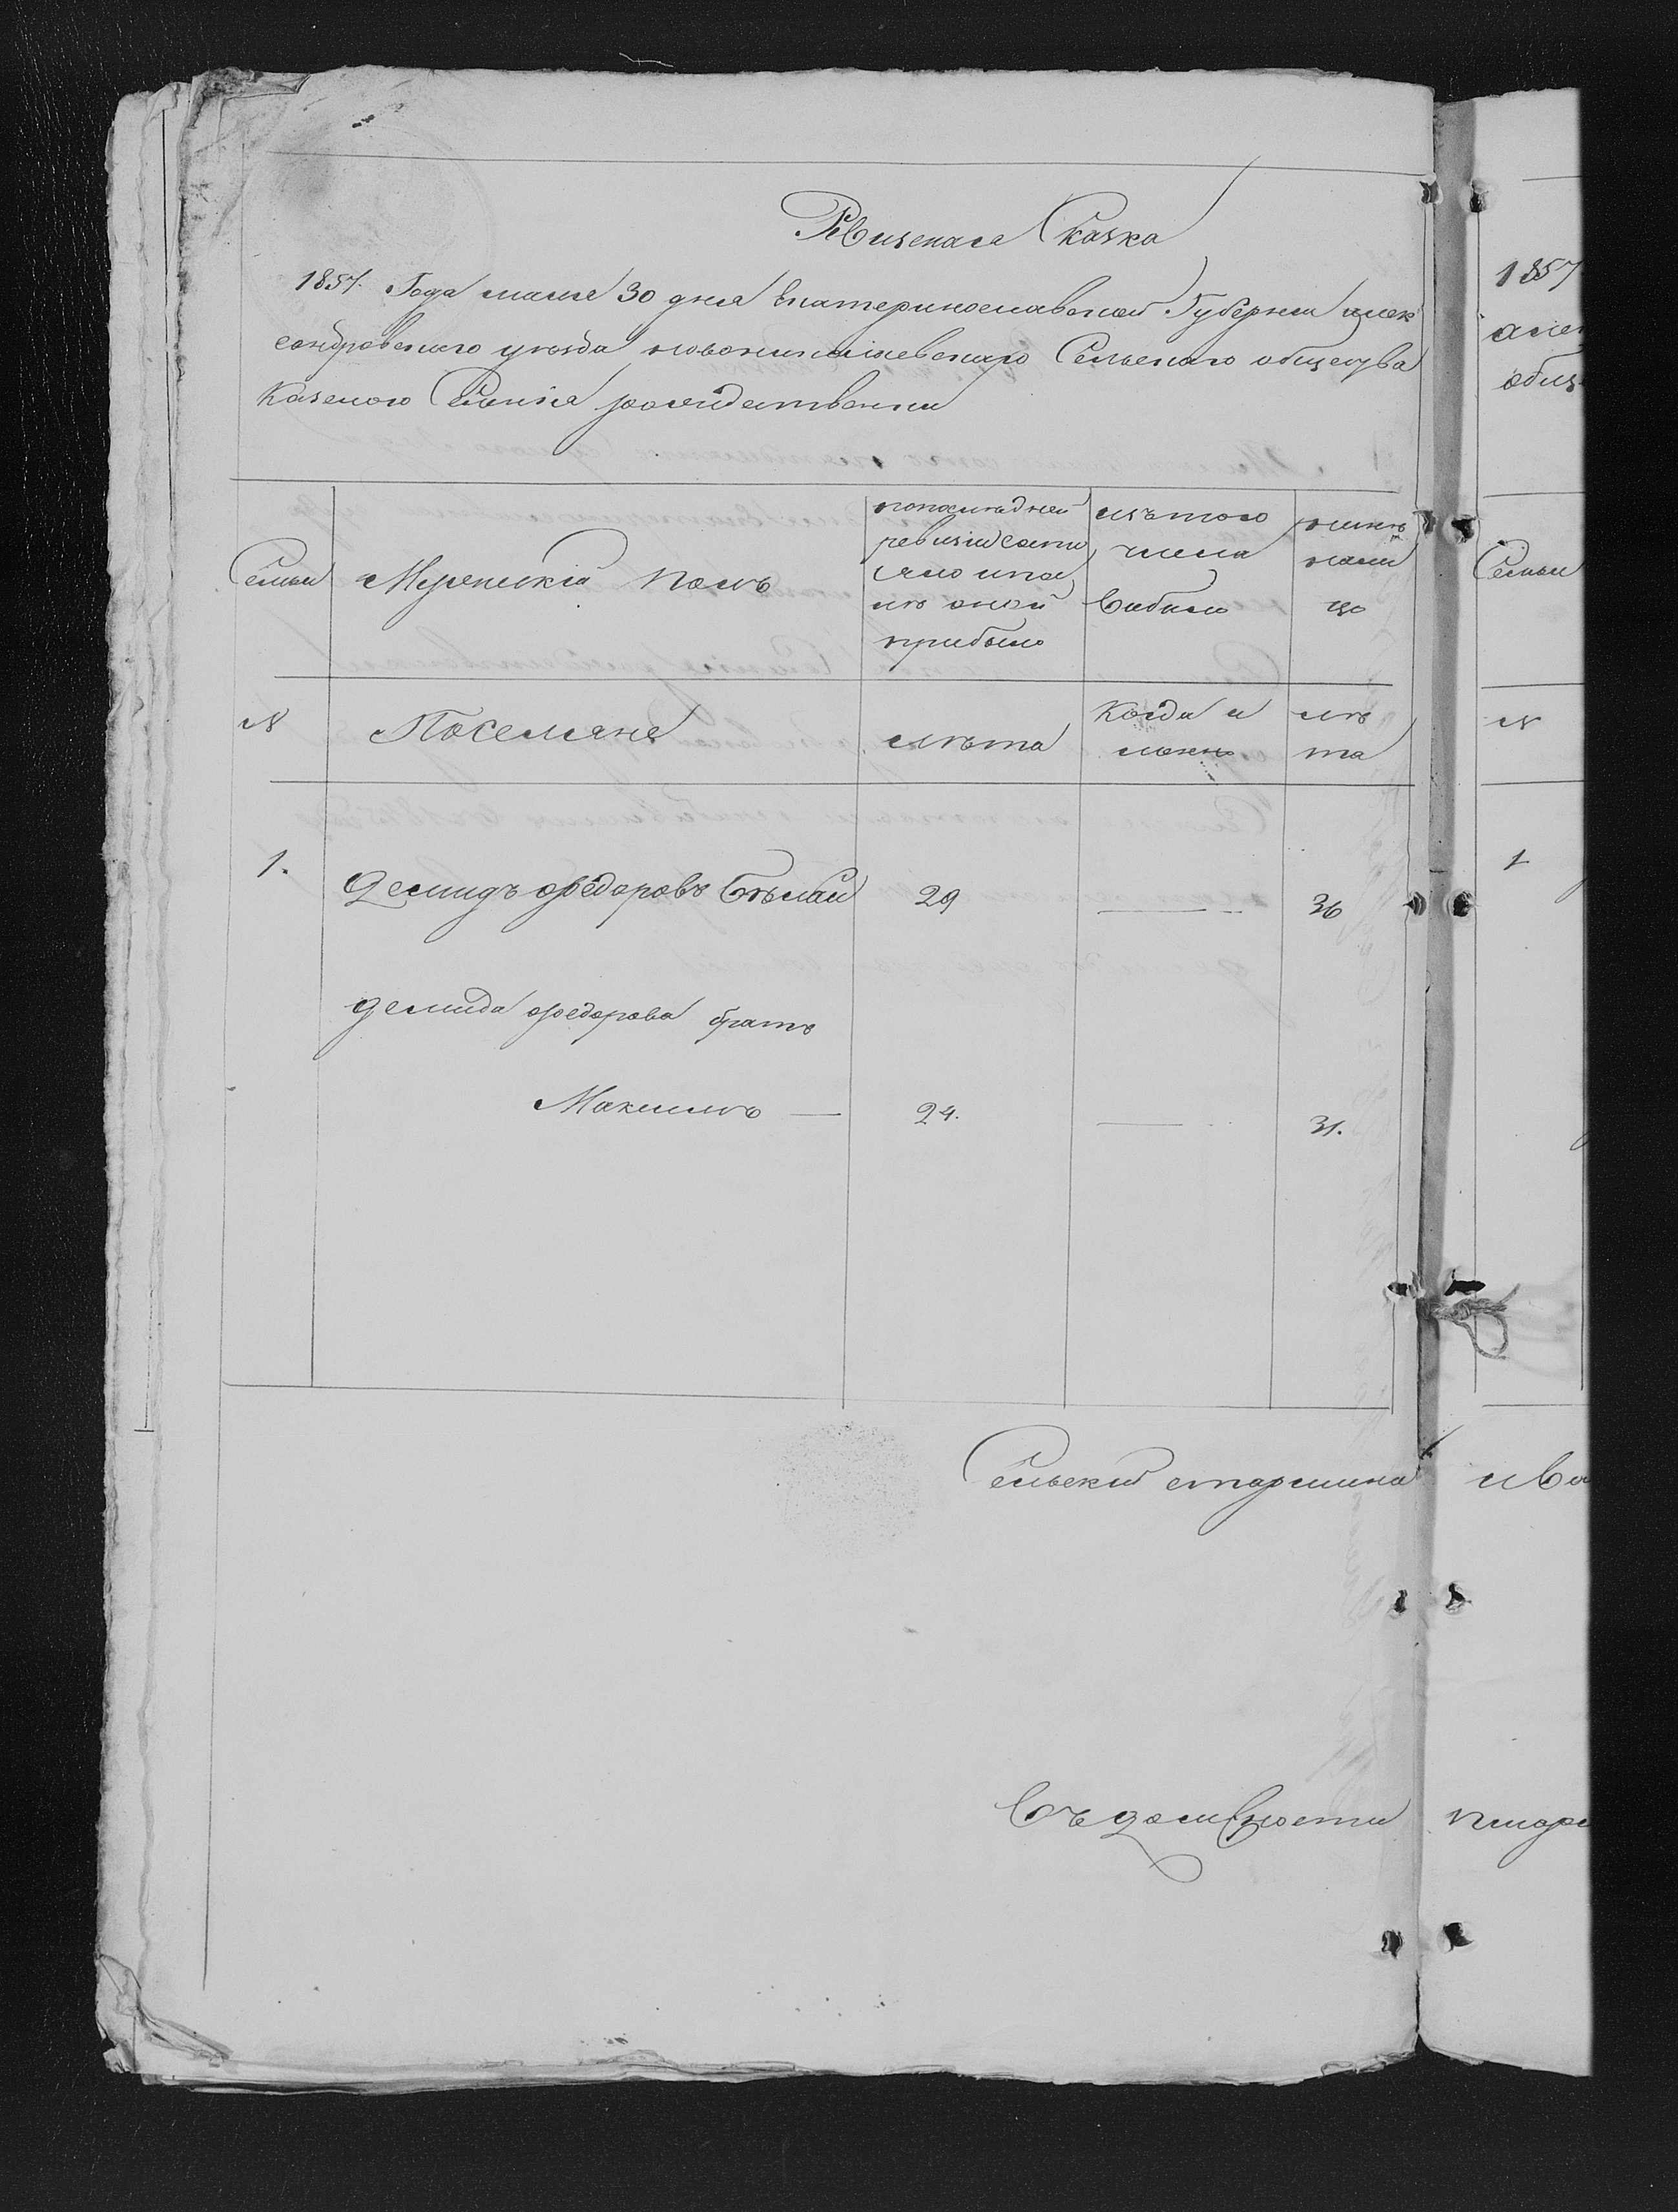 Ревизская Сказка
1857. Года мaия 30 дня Екатеринославской Губернии алек
сандровскаго уезда новониколаевскаго Сельскаго общества
Казеного Селения рождественки
Семьи
Мужеский полъ
попоследней
ревизии состо
яло ипос
ле оной
прибыло
изътого
числа
выбыло
ныне
нали
цо
№
Поселяне
лета
Когда и
ле
та
1.
Демидъ Федоровъ Белай
29
36
Демида Федорова братъ
Максимъ
24.
31.
Сельский старшина
Въ должности
1857
алек
общ
Семьи
№
1
ива
писаря